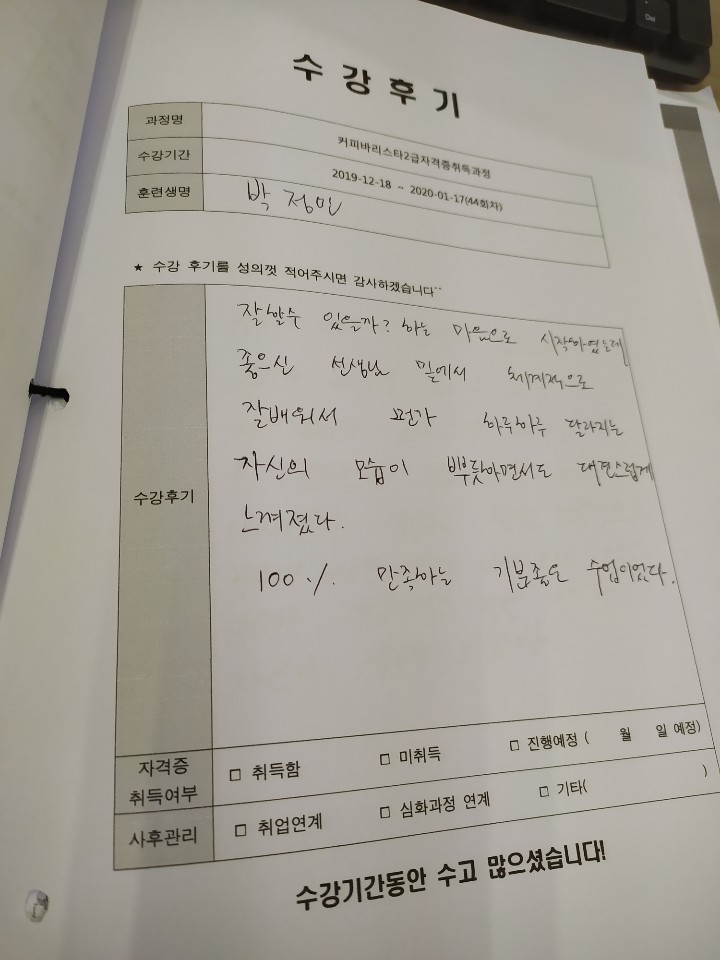 수강후기
과정명 커피바리스타2급자격증취득과정
수강기간 2019-12-18 ~ 2020-01-17(44회차)
훈련생명 박정민
★ 수강 후기를 성의껏 적어주시면 감사하겠습니다^^
수강후기
잘할수 있을까? 하는 마음으로 시작하였는데
좋으신 선생님 밑에서 체계적으로
잘배워서 뭔가 하루하루 달라지는
자신의 모습이 뿌듯하면서도 대견스럽게
느껴졌다.
100 % 만족하는 기분좋은 수업이었다.
자격증 취득여부 □ 취득함 □ 미취득 □ 진행예정 ( 월 일 예정)
사후관리 □ 취업연계 □ 심화과정 연계 □ 기타( )
수강기간동안 수고 많으셨습니다!
Del